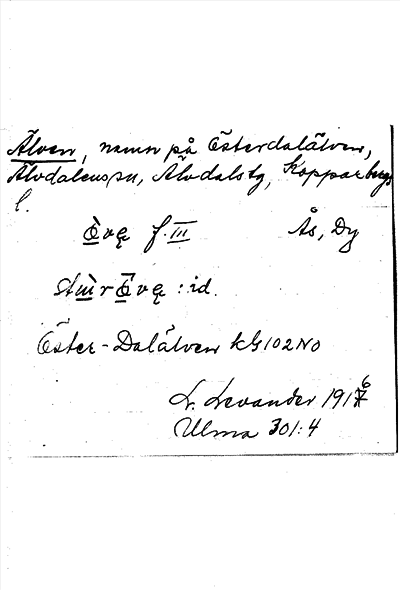 Älven, namn på Österdalälven,
Älvdalens sn, Älvdals tg, Kopparbergs
l.
f. III Ås, Dy
: id.
Öster-Dalälven kG102NO
L. Levander 1916
Ulma 301:4